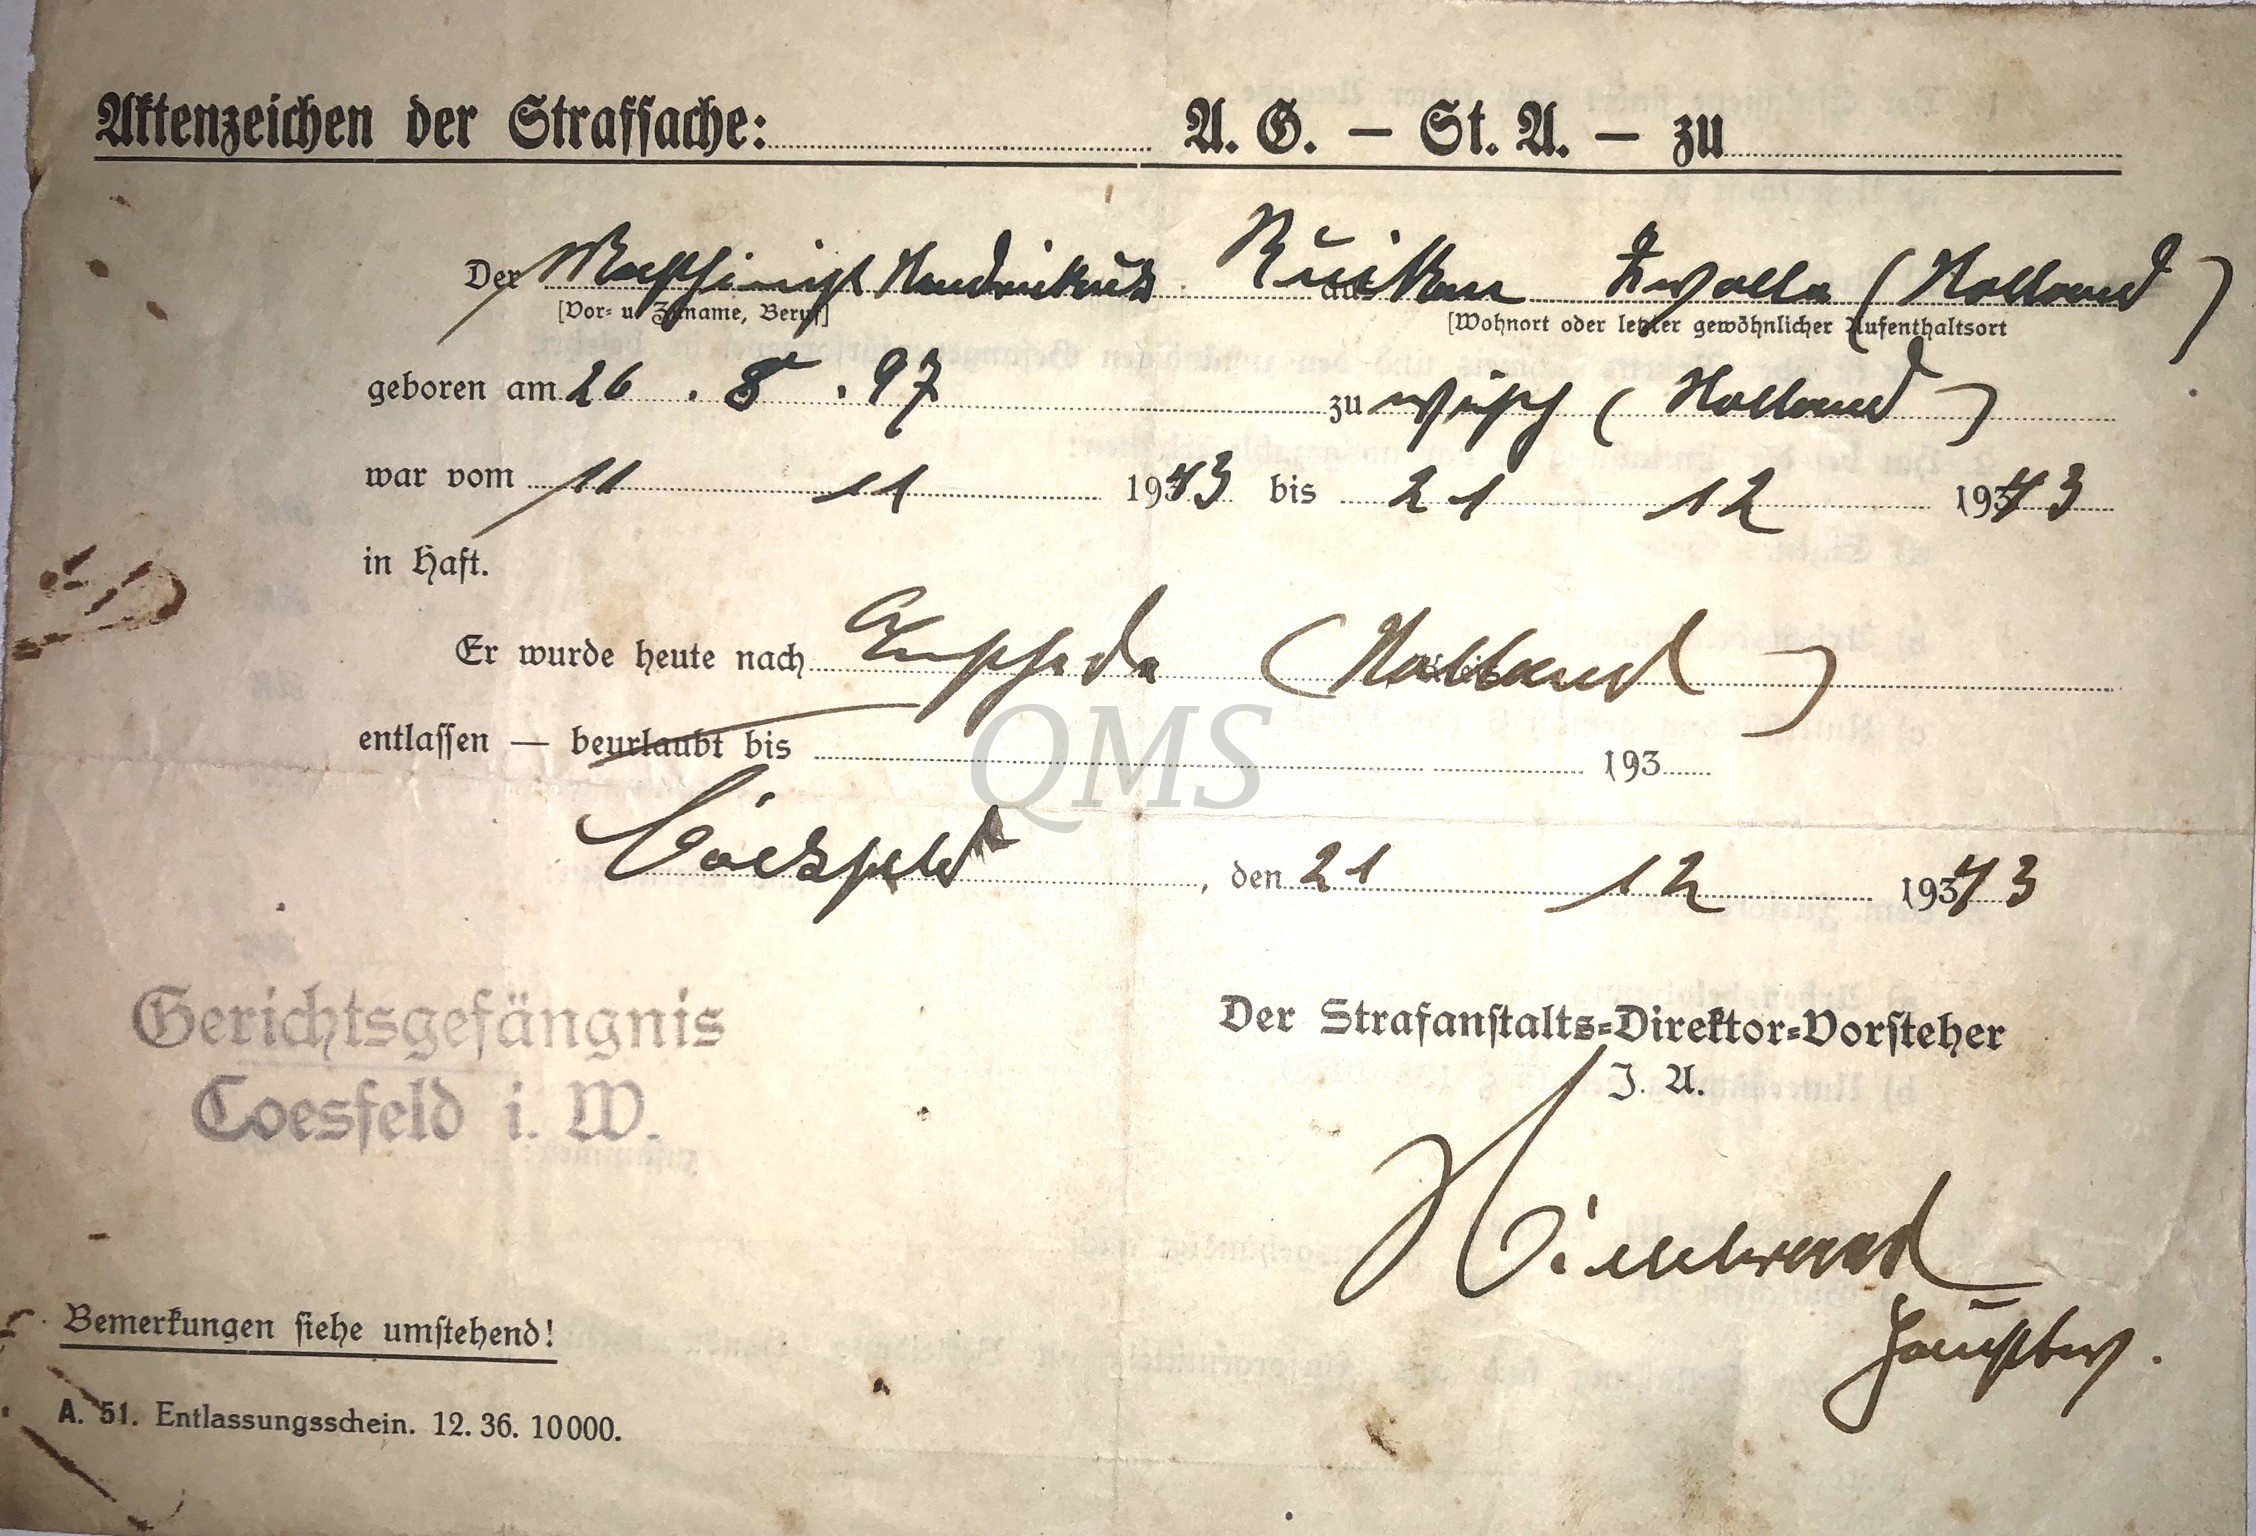 Aktenzeichen der Strafsache: A. G. — St. A. — zu
Der Maschinist Hendrikus Ruikes aus Zwolle (Holland)
[Vor- u. Zuname, Beruf] [Wohnort oder letzter gewöhnlicher Aufenthaltsort
geboren am 26 . 8 . 97 zu Wisch (Holland)
war vom 11 11 1943 bis 21 12 1943
in Haft.
Er wurde heute nach Enschede (Holland)
entlassen — beurlaubt bis 193
QMS
Coesfeld, den 21 12 1943
Gerichtsgefängnis
Coesfeld i. W.
Der Strafanstalts-Direktor-Vorsteher
I. A.
Hauptw.
Bemerkungen siehe umstehend!
A. 51. Entlassungsschein. 12. 36. 10000.